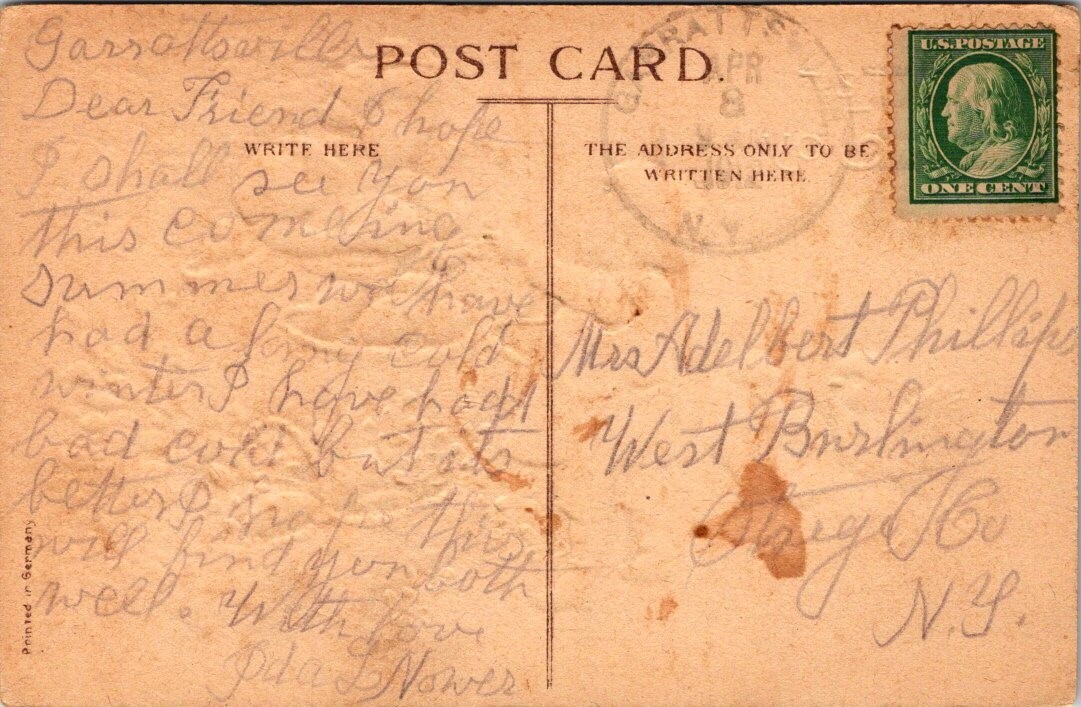 Garrattsville
Dear Friend I hope
I shall see you
this comeing
summer we have
had a long cold
winter I have had
bad cold but its
better I hope this
will find you both
well. With Love
Ida L Nower
POST CARD.
WRITE HERE
THE ADDRESS ONLY TO BE
WRITTEN HERE
Mrs Adelbert Phillips
West Burlington
Otsego Co
N.Y.
U.S. POSTAGE
ONE CENT
GARRATTSVILLE
APR
8
N.Y.
Printed in Germany